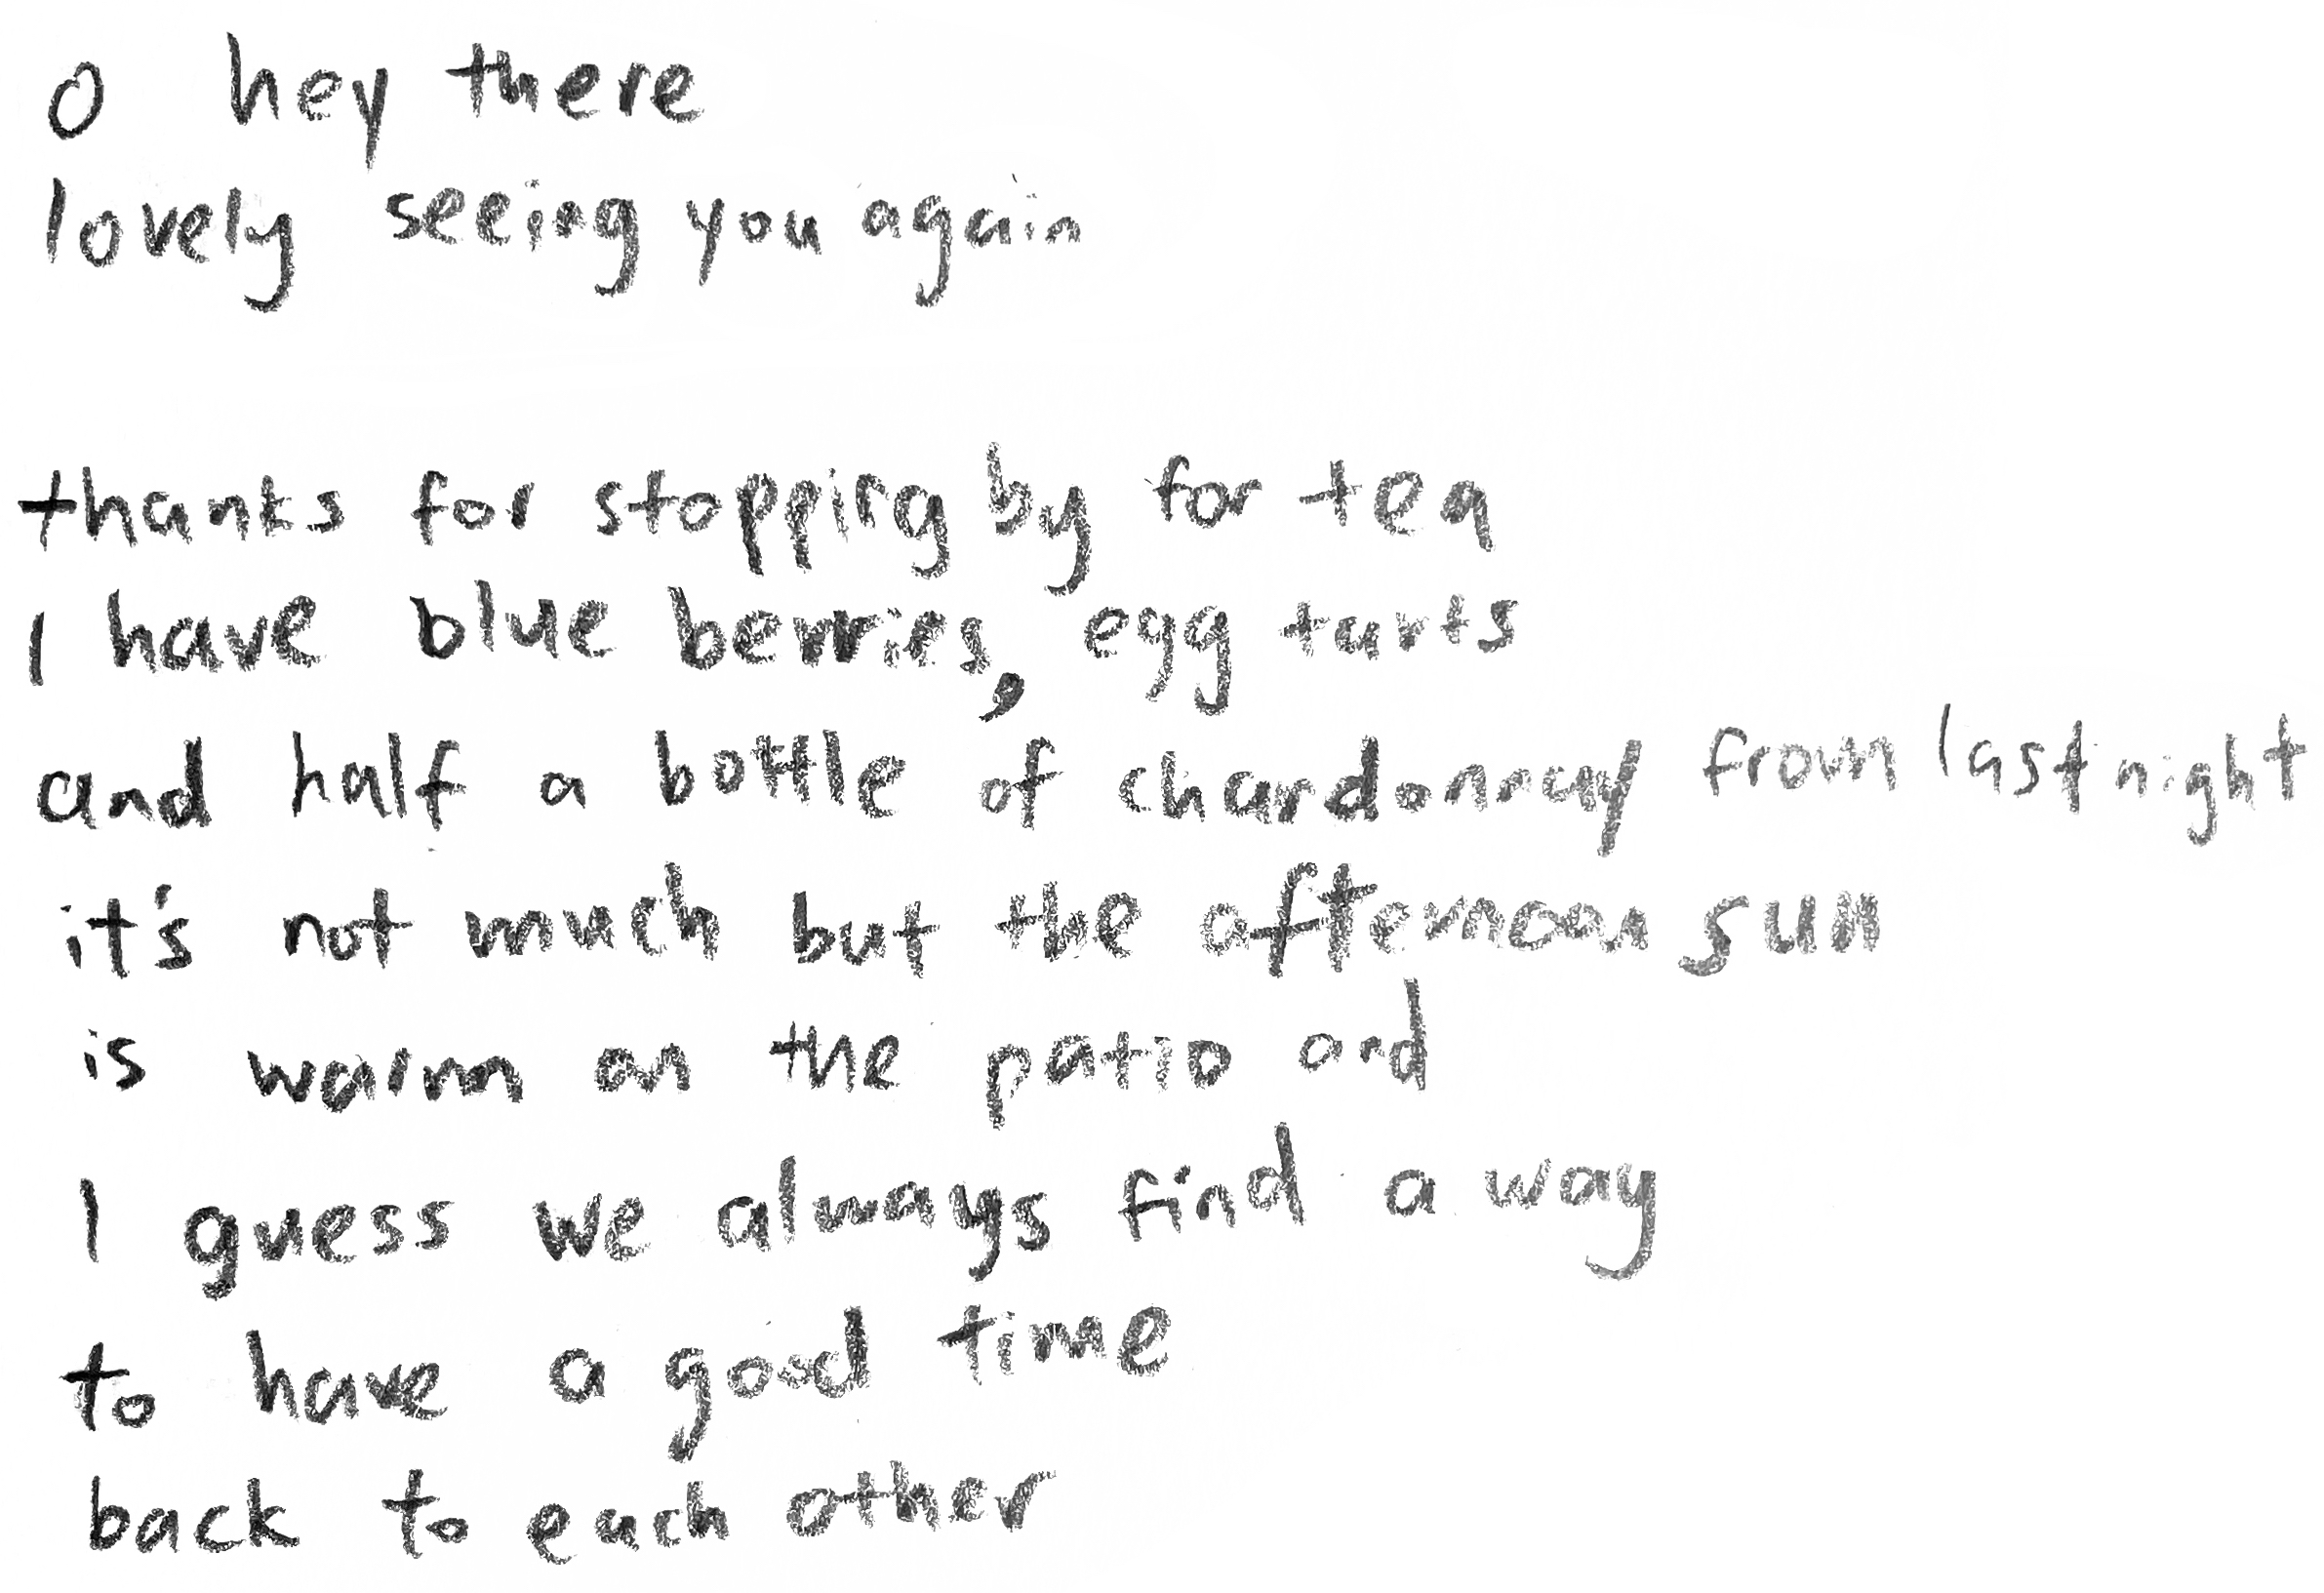 o hey there
lovely seeing you again
thanks for stopping by for tea
I have blue berries, egg tarts
and half a bottle of chardonnay from last night
it's not much but the afternoon sun
is warm on the patio and
I guess we always find a way
to have a good time
back to each other